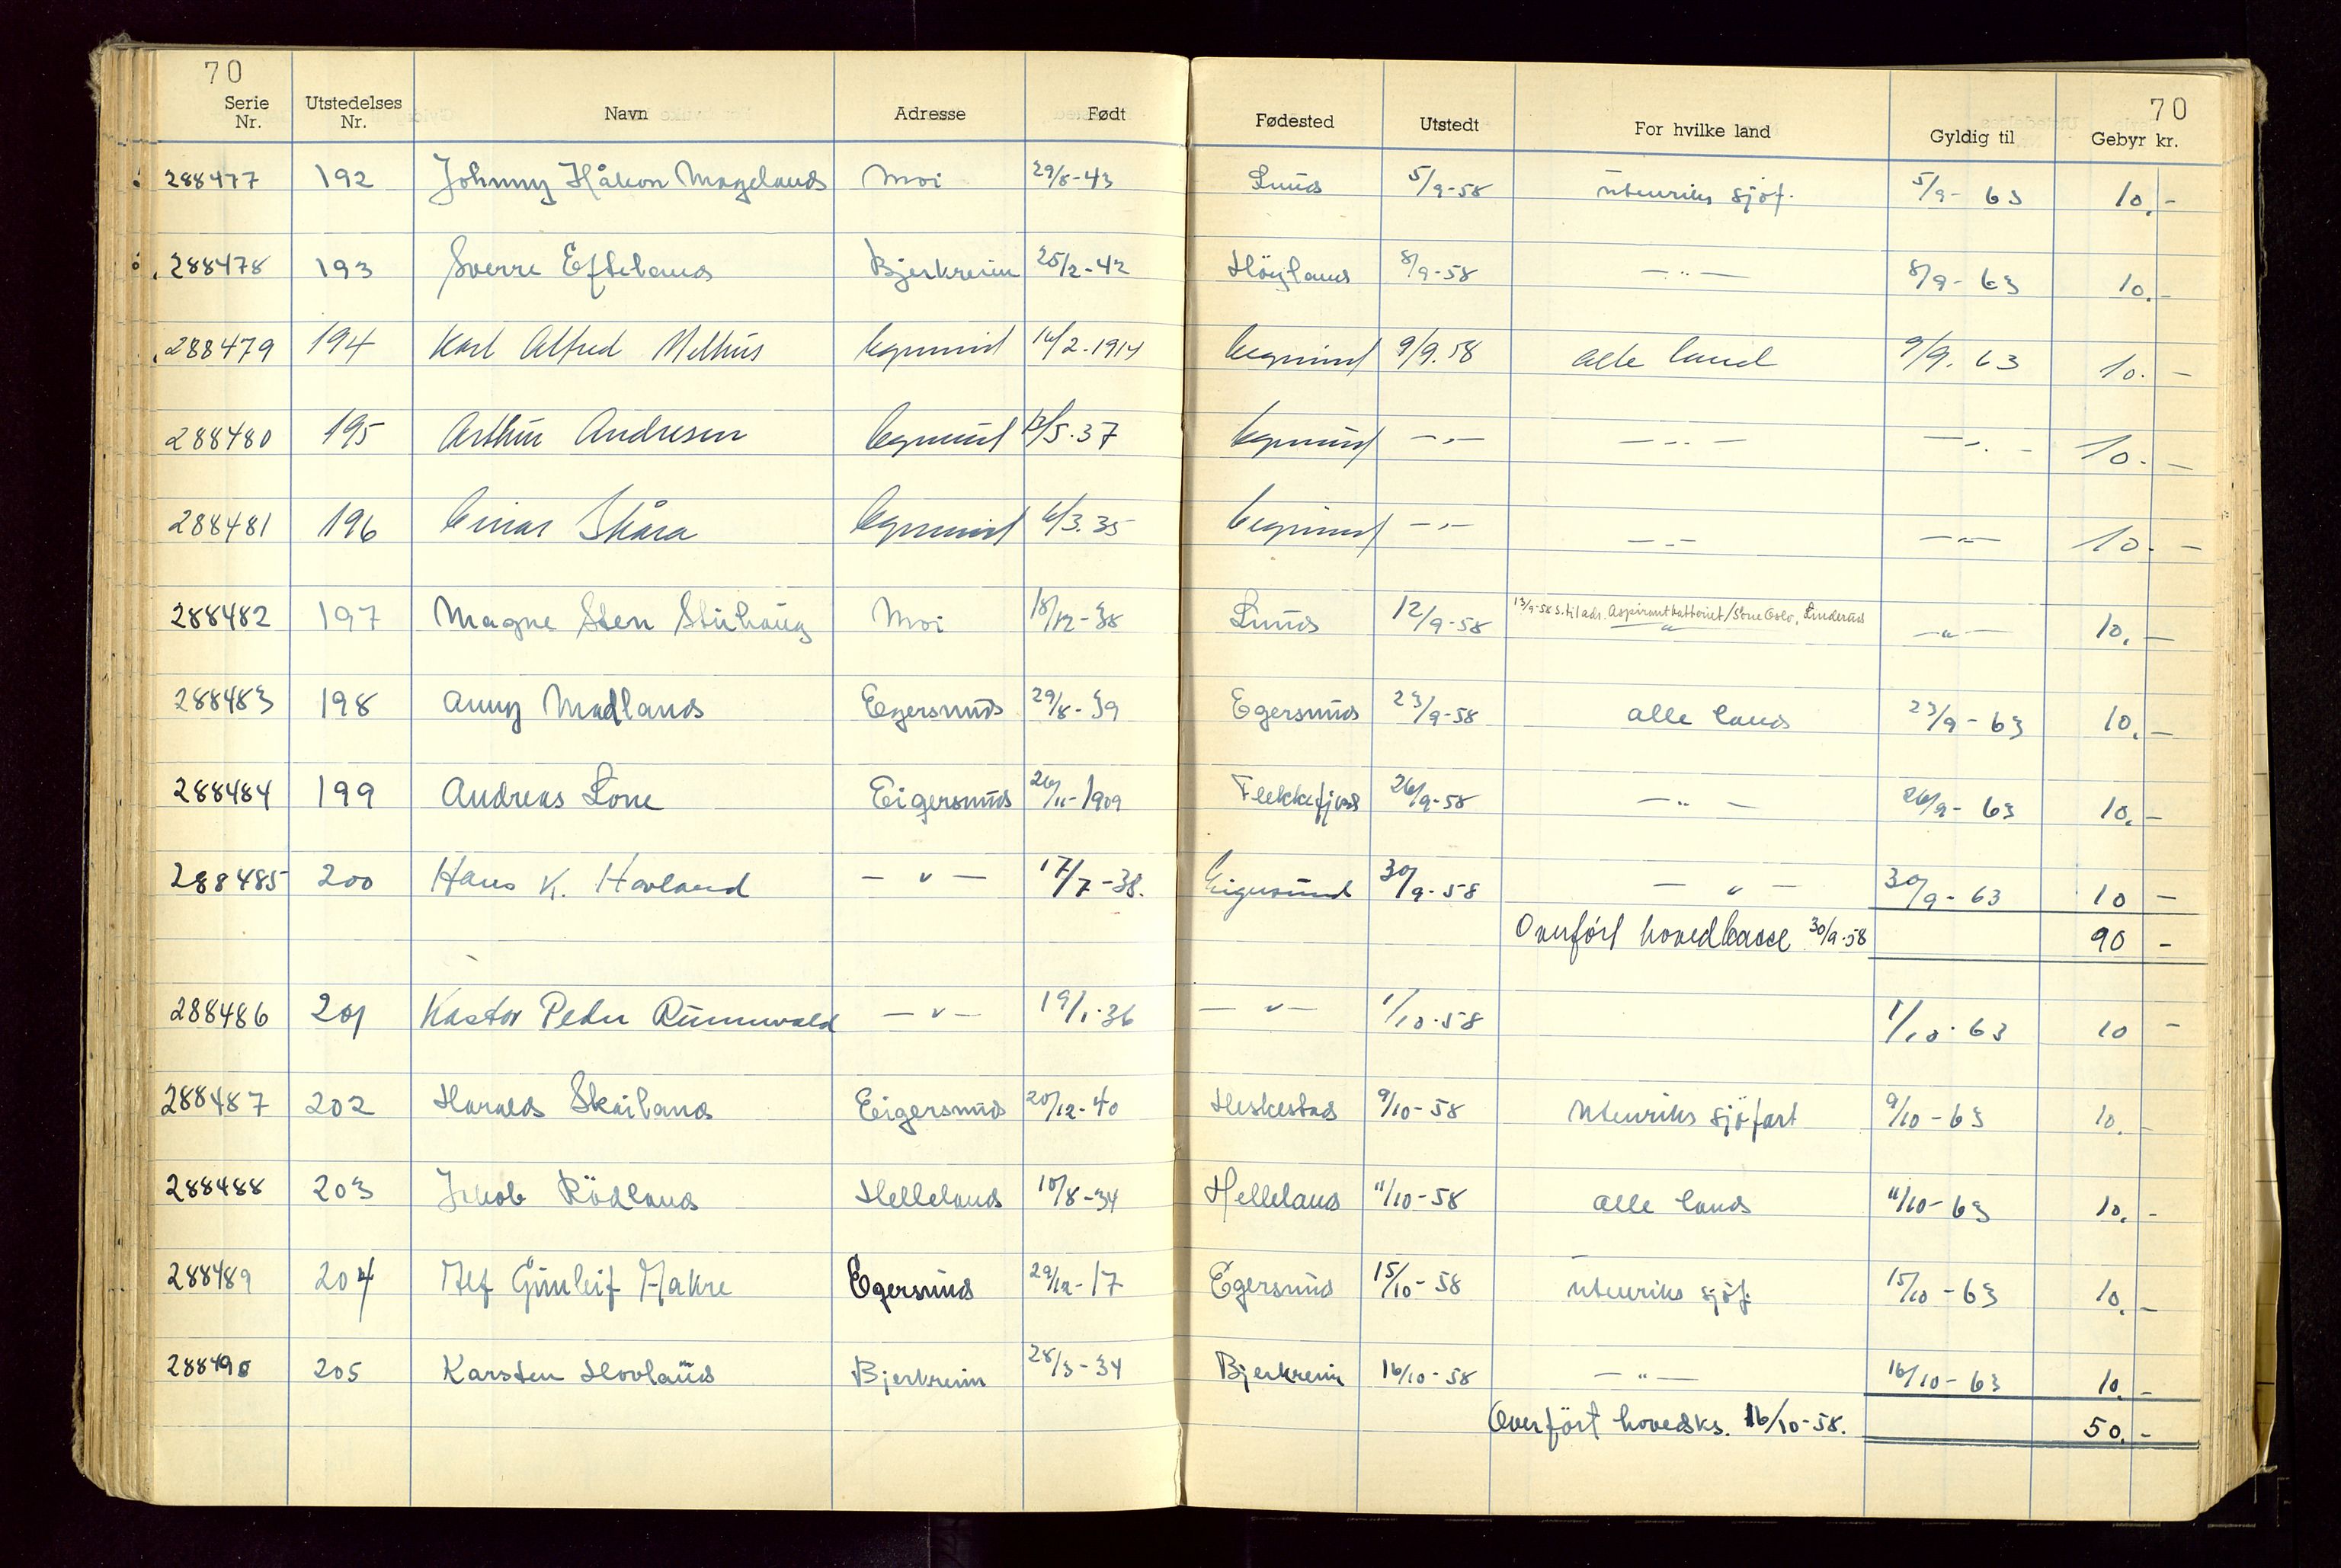 70
70
Serie Nr. Utstedelses Nr. Navn Adresse Født Fødested Utstedt For hvilke land Gyldig til Gebyr kr.
288477 192 Johnny Håkon Mogeland Moi 29/8-43 Lund 5/9-58 utenriks sjøf. 5/9-63 10,-
288478 193 Sverre Efteland Bjerkreim 25/2-42 Höyland 8/9-58 —"— 8/9-63 10,-
288479 194 Karl Alfred Melhus Egersund 14/2-1914 Egersund 9/9.58 alle land 9/9.63 10.-
288480 195 Arthur Andresen Egersund /5.37 Egersund —"— —"— —"— 10.-
288481 196 Einar Skåra Egersund 6/3.35 Egersund —"— —"— —"— 10.-
288482 197 Magne Sten Moi 18/12-38 Lund 12/9-58 13/9-58 S. til adr. Aspirantbatteriet/ Oslo, Linderud —"— —"— 10,-
288483 198 Anny Madland Egersund 29/8-39 Egersund 23/9-58 alle land 23/9-63 10,-
288484 199 Andreas Lone Eigersund 26/11-1909 Flekkefjord 26/9-58 —"— 26/9-63 10,-
288485 200 Hans K. Hovland —"— 17/7-38. Eigersund 30/9-58 —"— 30/9-63 10 -
Overført hovedkasse 30/9-58 90 -
288486 201 Kastor Peder —"— 19/1-36 —"— 1/10-58 1/10-63 10 -
288487 202 Harald Skåiland Eigersund 20/12-40 Heskestad 9/10-58 utenriks sjöfart 9/10-63 10.-
288488 203 Jakob Rödland Helleland 10/8-34 Helleland 11/10-58 alle land 11/10-63 10,-
288489 204 Alf Gunleif Egersund 29/12-17 Egersund 15/10-58 utenriks sjöf. 15/10-63 10,-
288490 205 Karsten Hovland Bjerkreim 28/3-34 Bjerkreim 16/10-58 —"— 16/10-63 10,-
Overfört hovedks. 16/10-58. 50,-